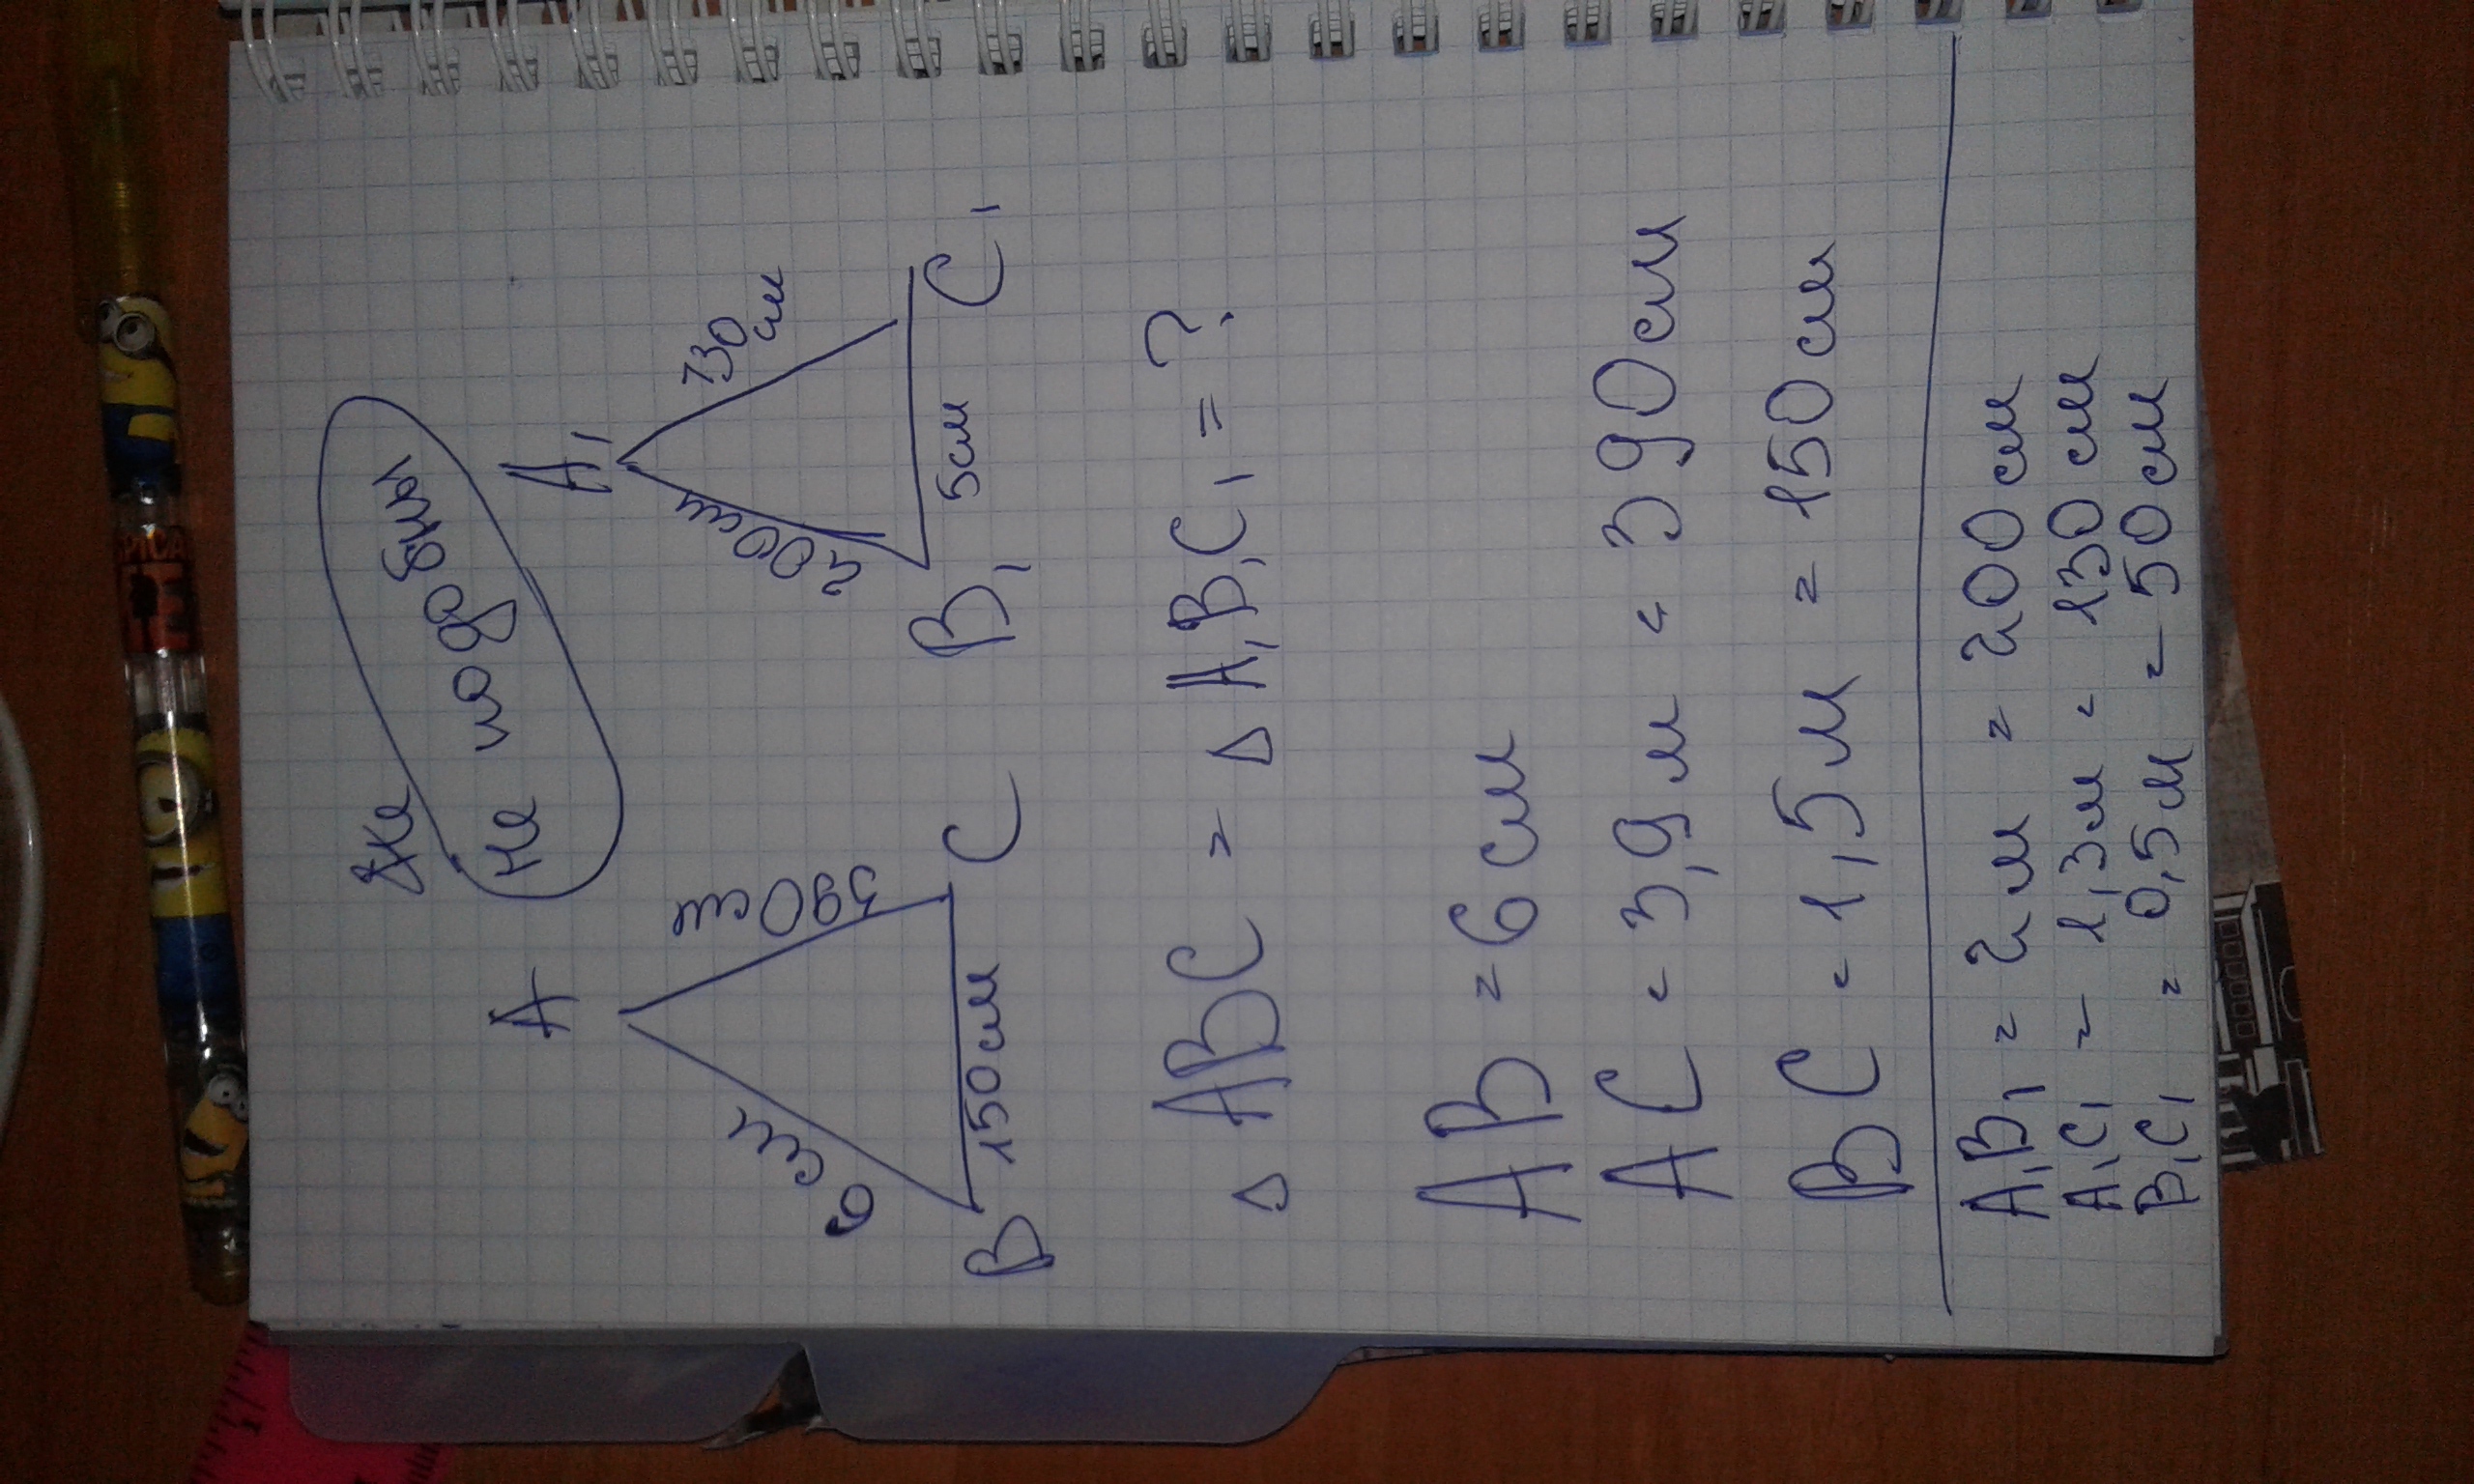 не подобны
A
A1
6 см
390 см
200 см
130 см
B
150 см
C
B1
5 см
C1
△ ABC = △ A1B1C1 = ?
AB = 6 см
AC = 3,9 м = 390 см
BC = 1,5 м = 150 см
A1B1 = 2 м = 200 см
A1C1 = 1,3 м = 130 см
B1C1 = 0,5 м = 50 см